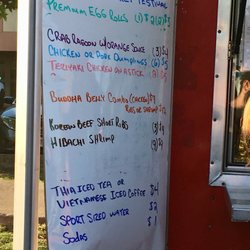 FESTIVAL
PREMIUM EGG ROLLS (2)
CRAB RAGOON W/ORANGE SAUCE (3) $
CHICKEN OR PORK DUMPLINGS (6) $
TERIYAKI CHICKEN ON A STICK (1) $
BUDDHA BELLY COMBO (CHICKEN) $
OR SHRIMP
KOREAN BEEF SHORT RIBS (3) $
HIBACHI SHRIMP
THAI ICED TEA OR $4
VIETNAMESE ICED COFFEE
SPORT SIZED WATER $2
SODAS $1